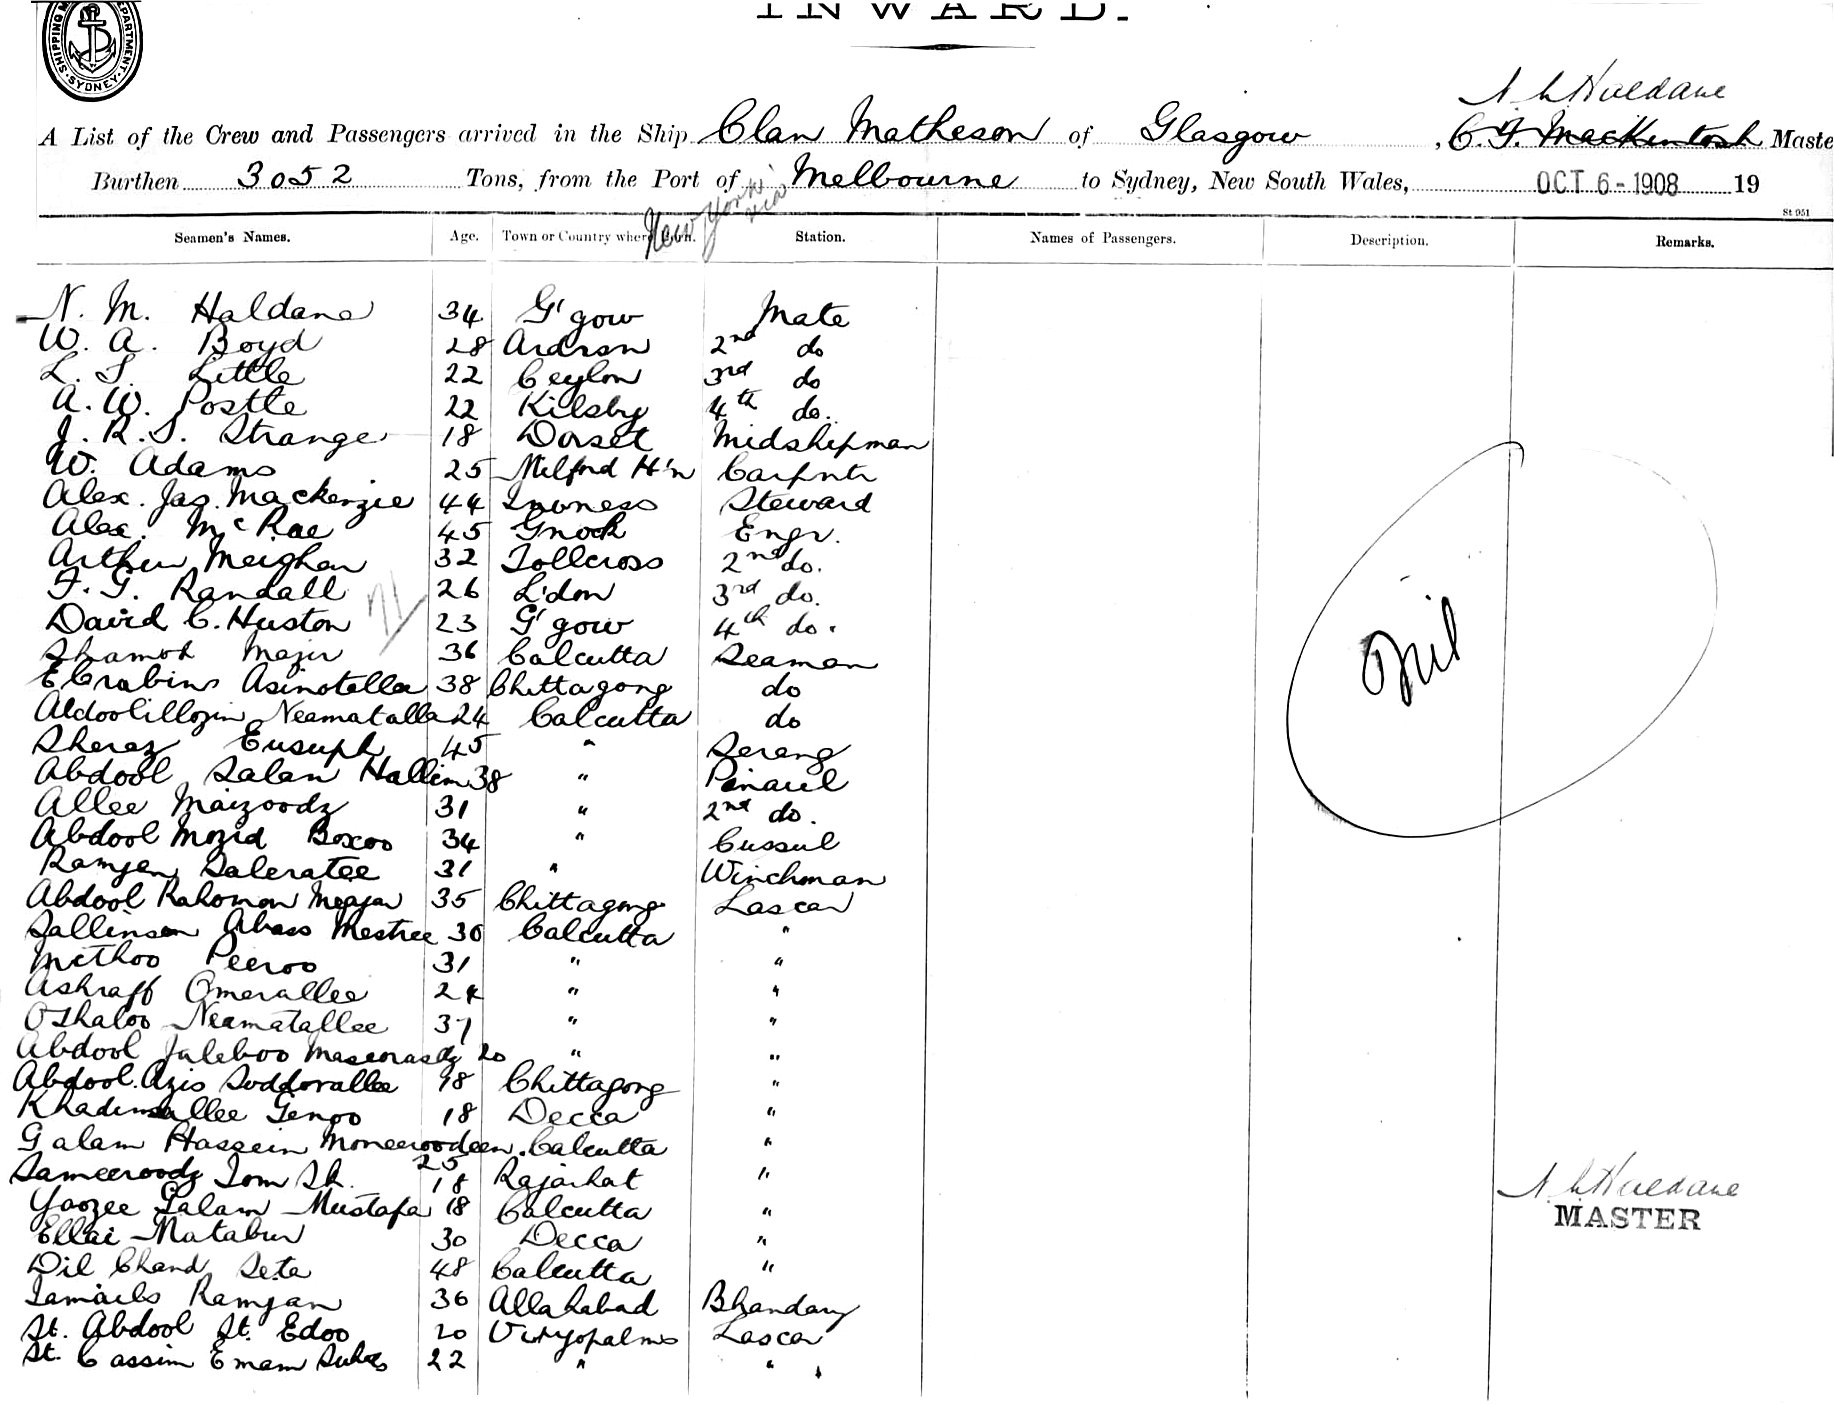 SHIPPING M DEPARTMENT SYDNEY
INWARD.
N. M Haldane
A List of the Crew and Passengers arrived in the Ship Clan Matheson of Glasgow, C. G. MacKintosh Maste
Burthen 3052 Tons, from the Port of New York via Melbourne to Sydney, New South Wales, OCT 6-1908 19
St 951
Seamen's Names. Age. Town or Country where Born. Station. Names of Passengers. Description. Remarks.
N. M. Haldane 34 G'gow Mate
W. A. Boyd 28 Ardrsn 2nd do
L. S. Little 22 Ceylon 3rd do
A. W. Postle 22 Kilsby 4th do.
J. R. S. Strange 18 Dorset Midshipman
W. Adams 25 Milford H'n Carpntr
Alex. Jas. Mackenzie 44 Invness Steward
Alex. McRae 45 Gnock Engr.
Arthur Meighan 32 Tollcross 2nd do.
F. G. Randall 26 L'don 3rd do.
David C. Huston 23 G'gow 4th do.
71
Shamoh Majir 36 Calcutta Seaman
Asinotalla 38 Chittagong do
Neamatalla 24 Calcutta do
Sheraz Eusuph 45 " Serang
Abdool Salam Hallim 38 "
Allee Maizoodz 31 " 2nd do.
Abdool Mozid Boxoo 34 " Cussul
Ramjan Saleratee 31 " Winchman
Abdool Rahoman Meajan 35 Chittagong Lascar
Abass Mestree 30 Calcutta "
Methoo Peeroo 31 " "
Ashraff Omerallee 24 " "
Neamatallee 37 " "
Abdool 20 " "
Abdool Azis Suddorallee 18 Chittagong "
Khademallee Genoo 18 Decca "
Galam Hassein Moneeroodeen Calcutta "
25
Sameeroodz Tom Sk. 18 Rajarhat "
Yoozee Galam Mustafa 18 Calcutta "
Ellai Matabur 30 Decca "
Dil Chand Seta 48 Calcutta "
Ramjan 36 Allahabad Bhandary
St. Abdool St. Edoo 20 Lascar
St. Cassim Emam 22 " "
Nil
N. M Haldane
MASTER